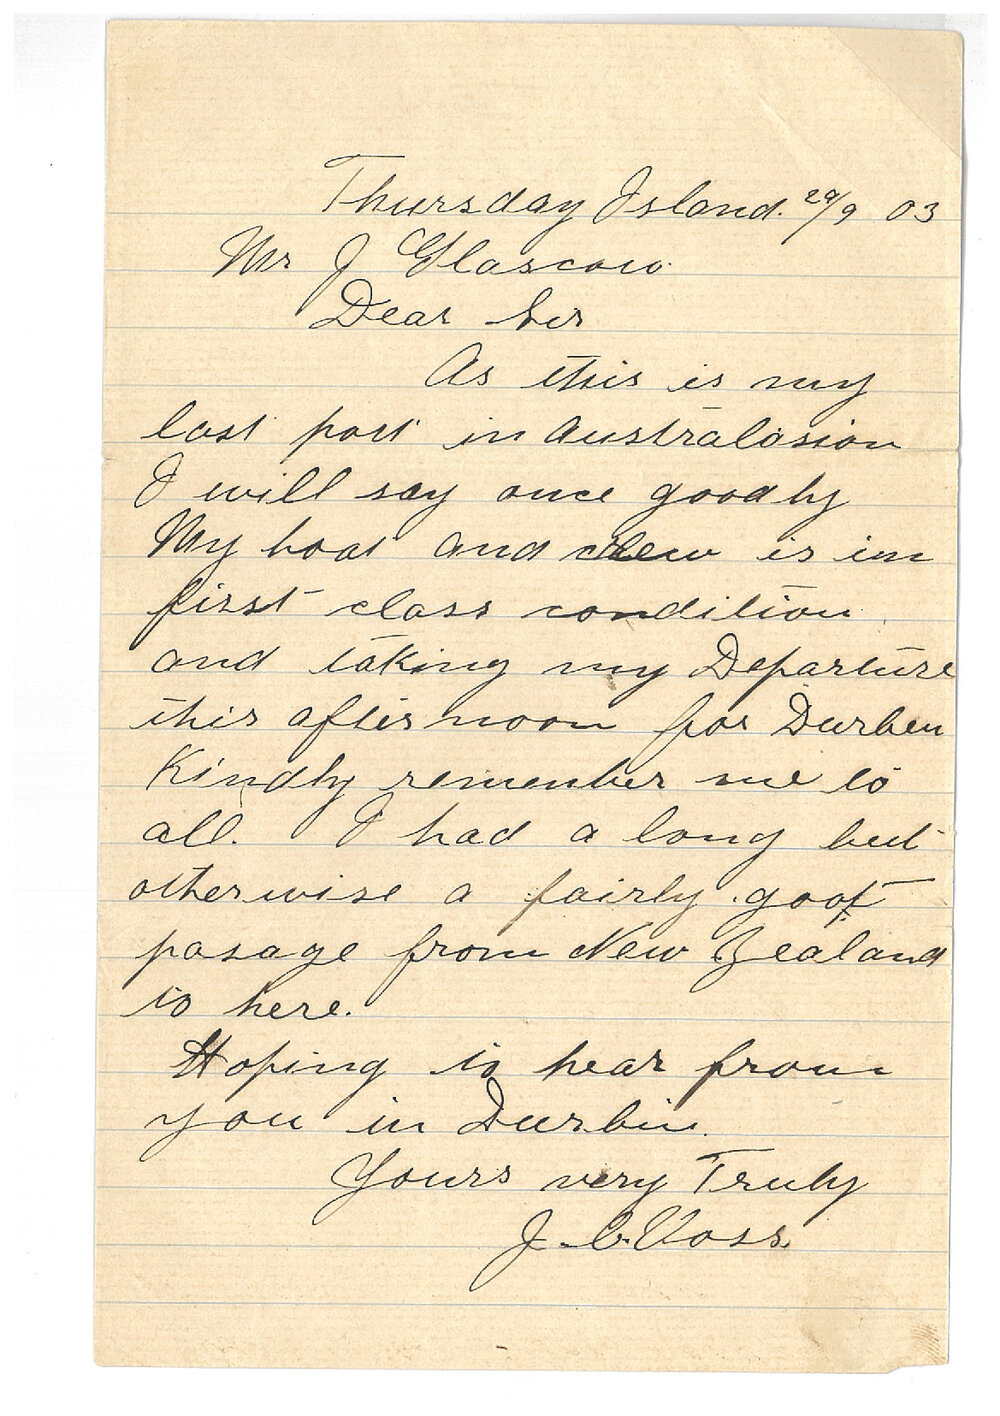 Thursday Island. 29/9 03
Mr J Glascow.
Dear Sir
As this is my
last port in Australasion
I will say once goodby
My boat and crew is in
first class condition
and taking my Departure
this afternoon for Durben
Kindly remember me to
all. I had a long but
otherwise a fairly goot
pasage from New Zealand
to here.
Hoping to hear from
you in Durbin.
Yours very Truly
J. C. Voss.